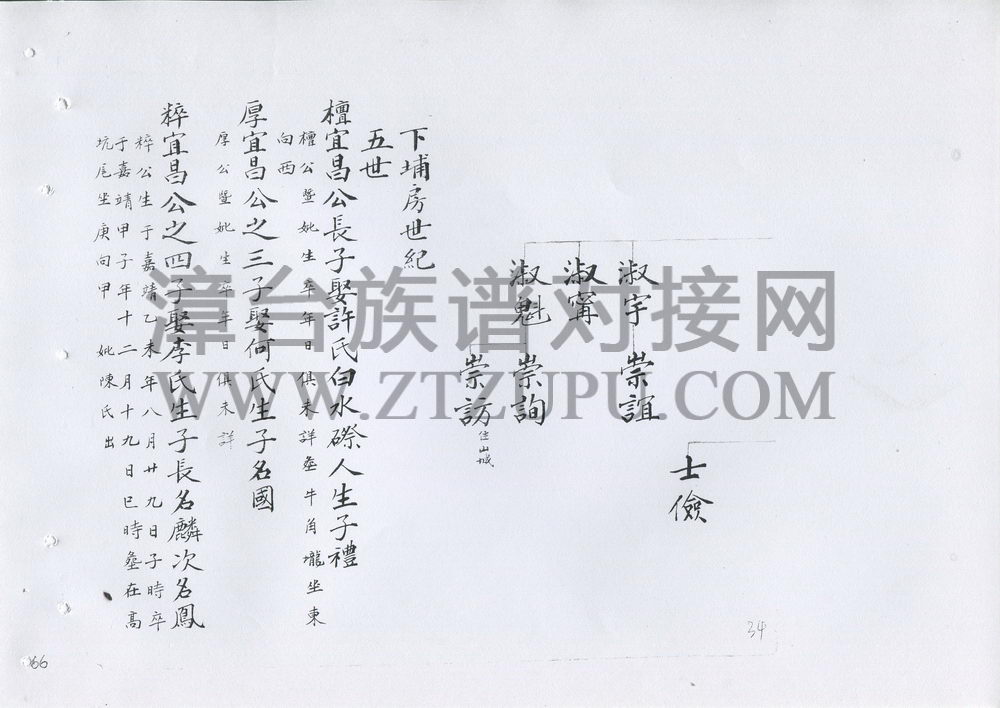 士儉
淑宇 崇誼
淑甯
淑魁 崇詢
崇訪 住山城
下埔房世紀
五世
檀宜昌公長子娶許氏白水磜人生子禮
檀公暨妣生卒年日俱未詳塟牛角壠坐東
向西
厚宜昌公之三子娶何氏生子名國
厚公暨妣生卒年日俱未詳
粹宜昌公之四子娶李氏生子長名麟次名鳳
粹公生于嘉靖乙未年八月廿九日子時卒
于嘉靖甲子年十二月十九日巳時塟在高
坑尾坐庚向甲 妣陳氏出
34
66
漳台族谱对接网
WWW.ZTZUPU.COM